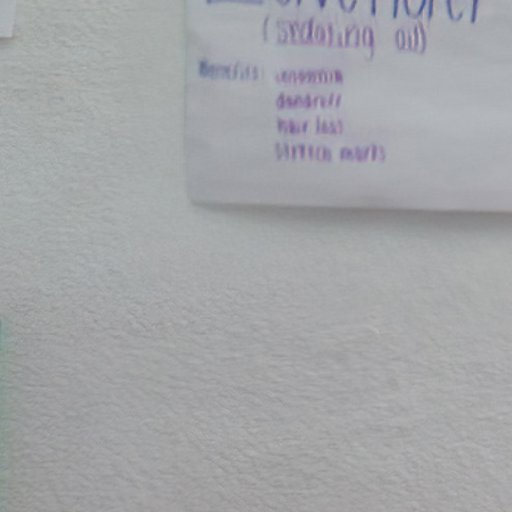 (sedating oil)
Benefits: insomnia
dandruff
hair loss
stretch marks